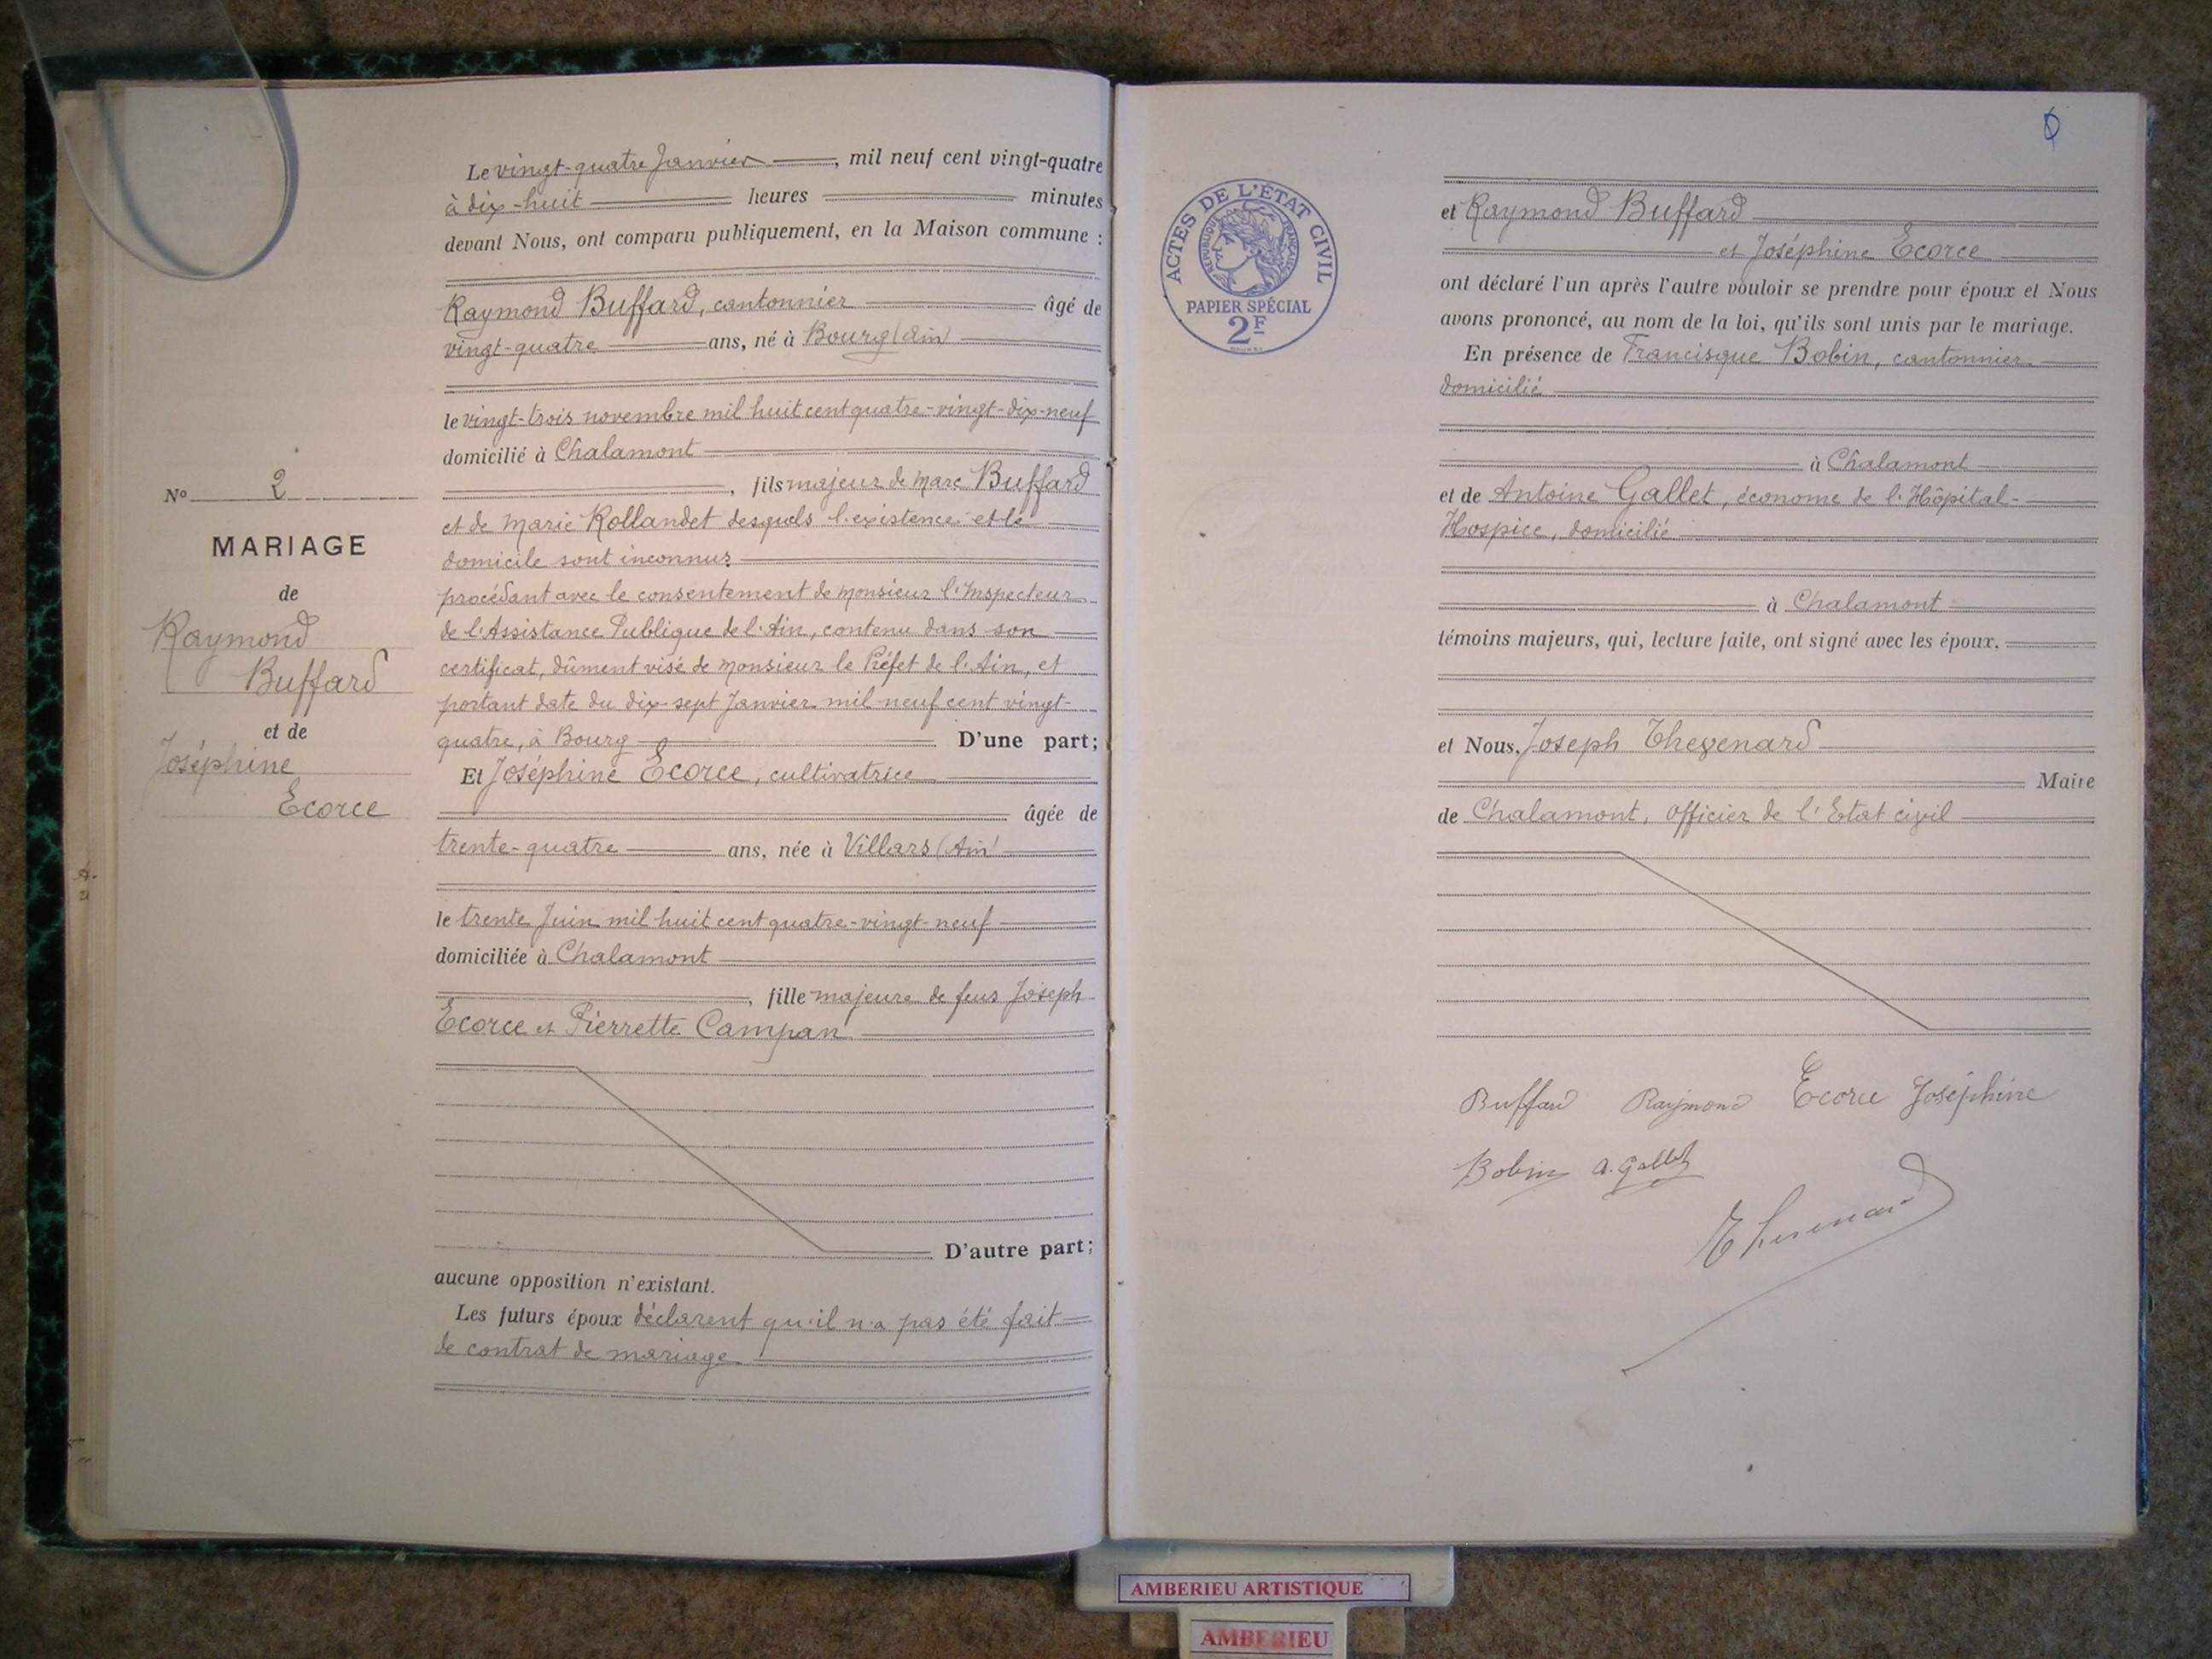 N° 2
MARIAGE
de
Raymond
Buffard
et de
Joséphine
Ecorce
Le vingt-quatre Janvier, mil neuf cent vingt-quatre
à dix-huit heures minutes
devant Nous, ont comparu publiquement, en la Maison commune :
Raymond Buffard, cantonnier âgé de
vingt-quatre ans, né à Bourg (Ain)
le vingt-trois novembre mil huit cent quatre-vingt-dix-neuf
domicilié à Chalamont
, fils majeur de Marc Buffard
et de Marie Rollandet desquels l'existence et le
domicile sont inconnus
procédant avec le consentement de Monsieur l'Inspecteur
de l'Assistance Publique de l'Ain, contenu dans son
certificat, dûment visé de Monsieur le Préfet de l'Ain, et
portant date du dix-sept Janvier mil neuf cent vingt-
quatre, à Bourg D'une part;
Et Joséphine Ecorce, cultivatrice
âgée de
trente-quatre ans, née à Villars (Ain)
le trente Juin mil huit cent quatre-vingt-neuf
domiciliée à Chalamont
, fille majeure de feus Joseph
Ecorce et Pierrette Campan
D'autre part;
aucune opposition n'existant.
Les futurs époux déclarent qu'il n'a pas été fait
de contrat de mariage
ACTES DE L'ÉTAT CIVIL
RÉPUBLIQUE FRANÇAISE
PAPIER SPÉCIAL
2F
et Raymond Buffard
et Joséphine Ecorce
ont déclaré l'un après l'autre vouloir se prendre pour époux et Nous
avons prononcé, au nom de la loi, qu'ils sont unis par le mariage.
En présence de Francisque Bobin, cantonnier
domicilié
à Chalamont
et de Antoine Gallet, économe de l'Hôpital-
Hospice, domicilié
à Chalamont
témoins majeurs, qui, lecture faite, ont signé avec les époux.
et Nous, Joseph Thevenard
Maire
de Chalamont, Officier de l'Etat civil
Buffard Raymond Ecorce Joséphine
Bobin A. Gallet
Thevenard
AMBERIEU ARTISTIQUE
AMBERIEU